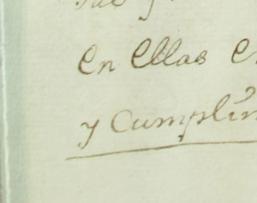 en ellas
y Cumplim